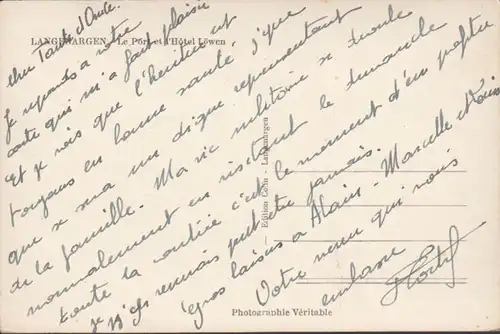 LANGENARGEN - Le Port et l'Hôtel Löwen
Cher Tante d'Oncle.
Je réponds à votre
carte qui m'a fait plaisir
Et je vois que l'héritier est
toujours en bonne santé. J'
que se sera un digne représentant
de la famille. Ma vie militaire se déroule
normalement en visitant le dimanche
toute la contrée c'est le moment d'en profiter
je n'y reviendrais peut être jamais.
Gros baisers à Alain - Marcelle et
Votre neveu qui vous
embrasse
Edition Colin - Langenargen
Photographie Véritable